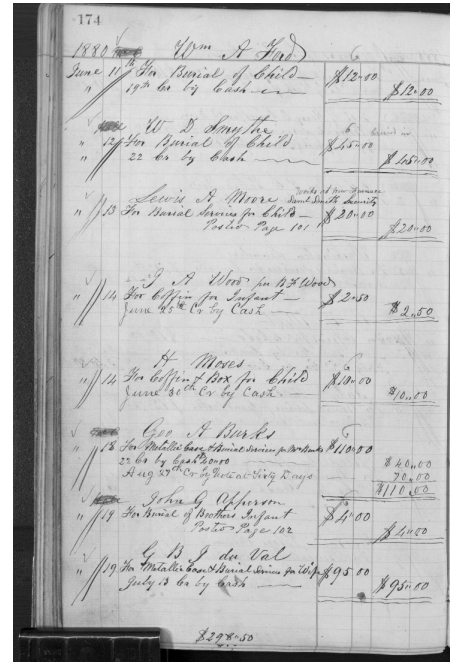 174
1880 Wm A Ford 6
June 11th For Burial of Child — $12.00
" 19th Cr by Cash — $12.00
W D Smythe 6
" 12 For Burial of Child $45.00
22 Cr by Cash — $45.00
Lewis A Moore works at
Saml Smith Security
" 13 For Burial Services for Child — $20.00
Posted Page 101 $20.00
J A Wood per B F Wood
" 14 For Coffin for Infant — $2.50
June 25th Cr by Cash — $2.50
H Moses 6
" 14 For Coffin & Box for Child $10.00
June 30th Cr by Cash — $10.00
Geo A Burks 6
" 18 For Metallic Case & Burial Services for Mrs Burks $110.00
22 Cr by Cash 40.00 $40.00
Aug 27th Cr by Note at Sixty Days — 70.00
$110.00
John G Apperson
" 19 For Burial of Brothers Infant $4.00
Posted Page 102 $4.00
G B J du Val
" 19 For Metallic Case & Burial Services for Wife $95.00
July 13 Cr by Cash — $95.00
$298.50